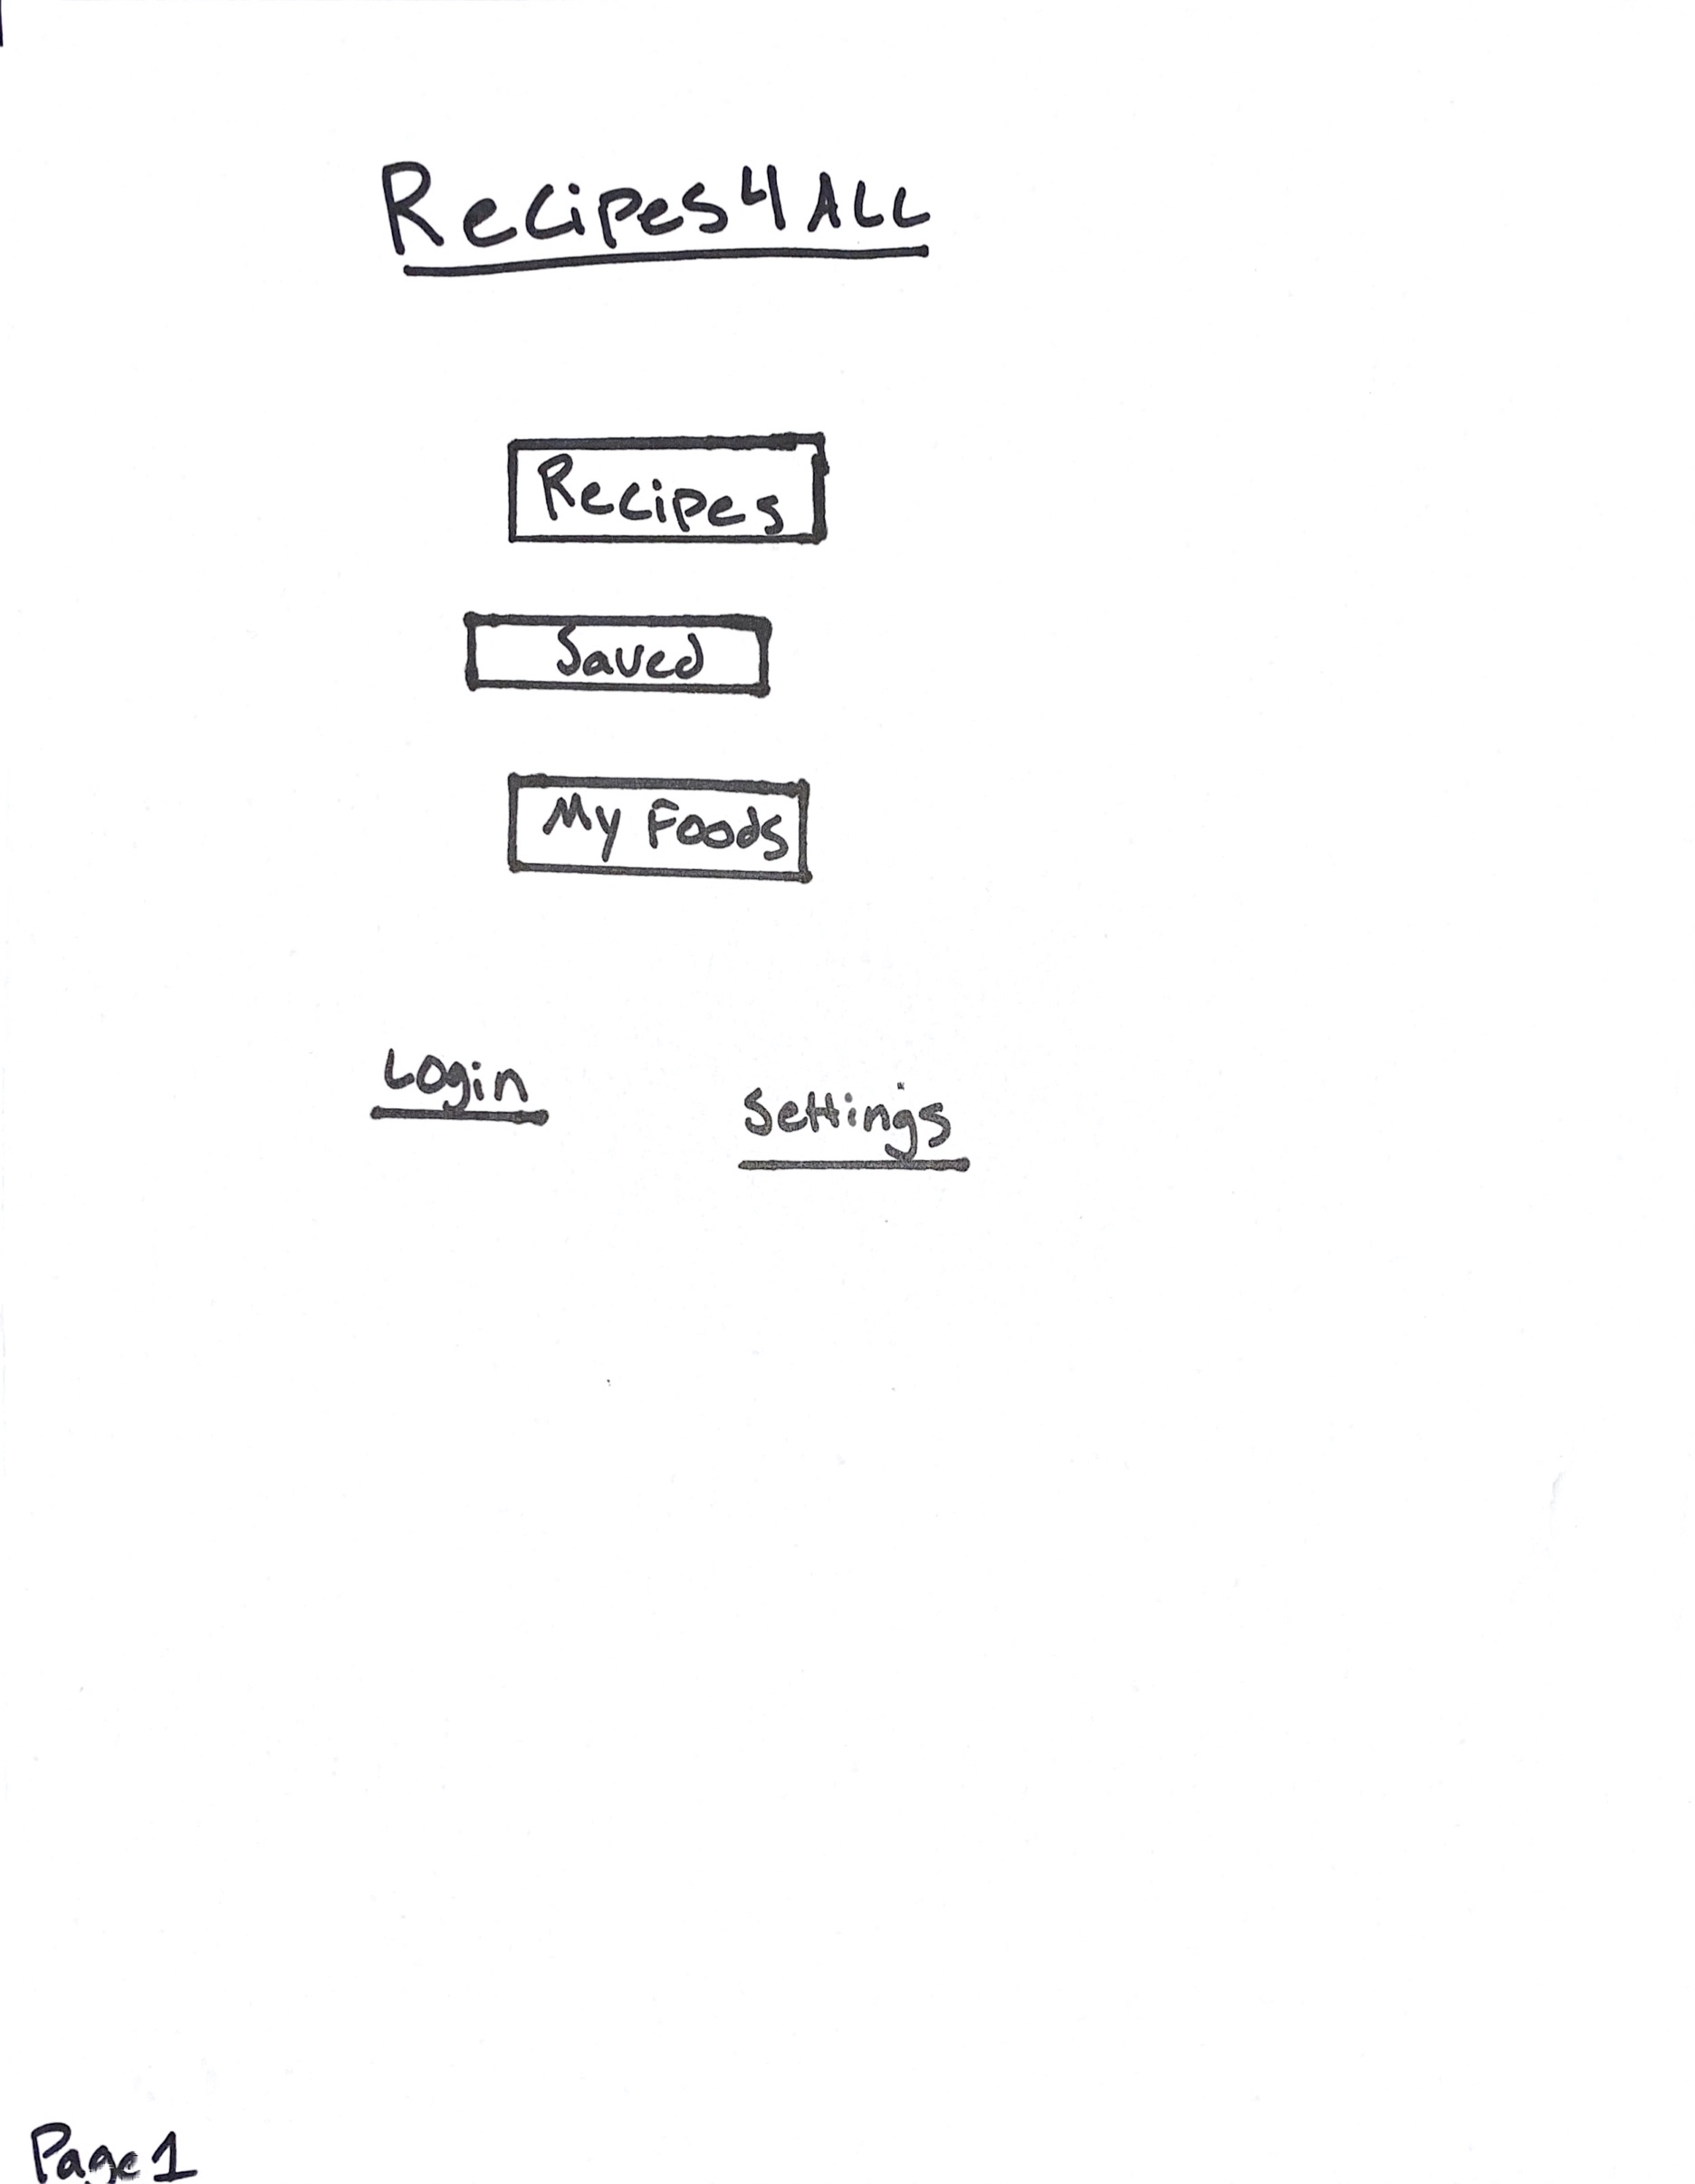 Recipes 4 ALL
Recipes
Saved
My Foods
Login
Settings
Page 1